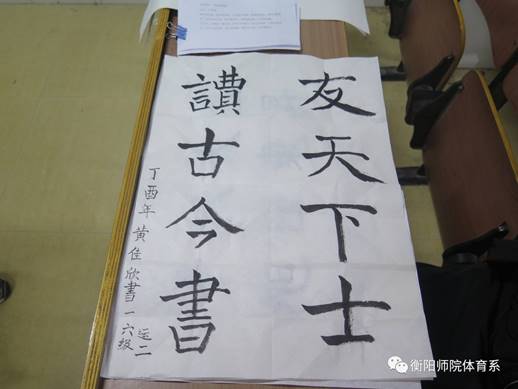 友天下士
讀古今書
丁酉年 黄佳欣書一六级
运二
衡阳师院体育系